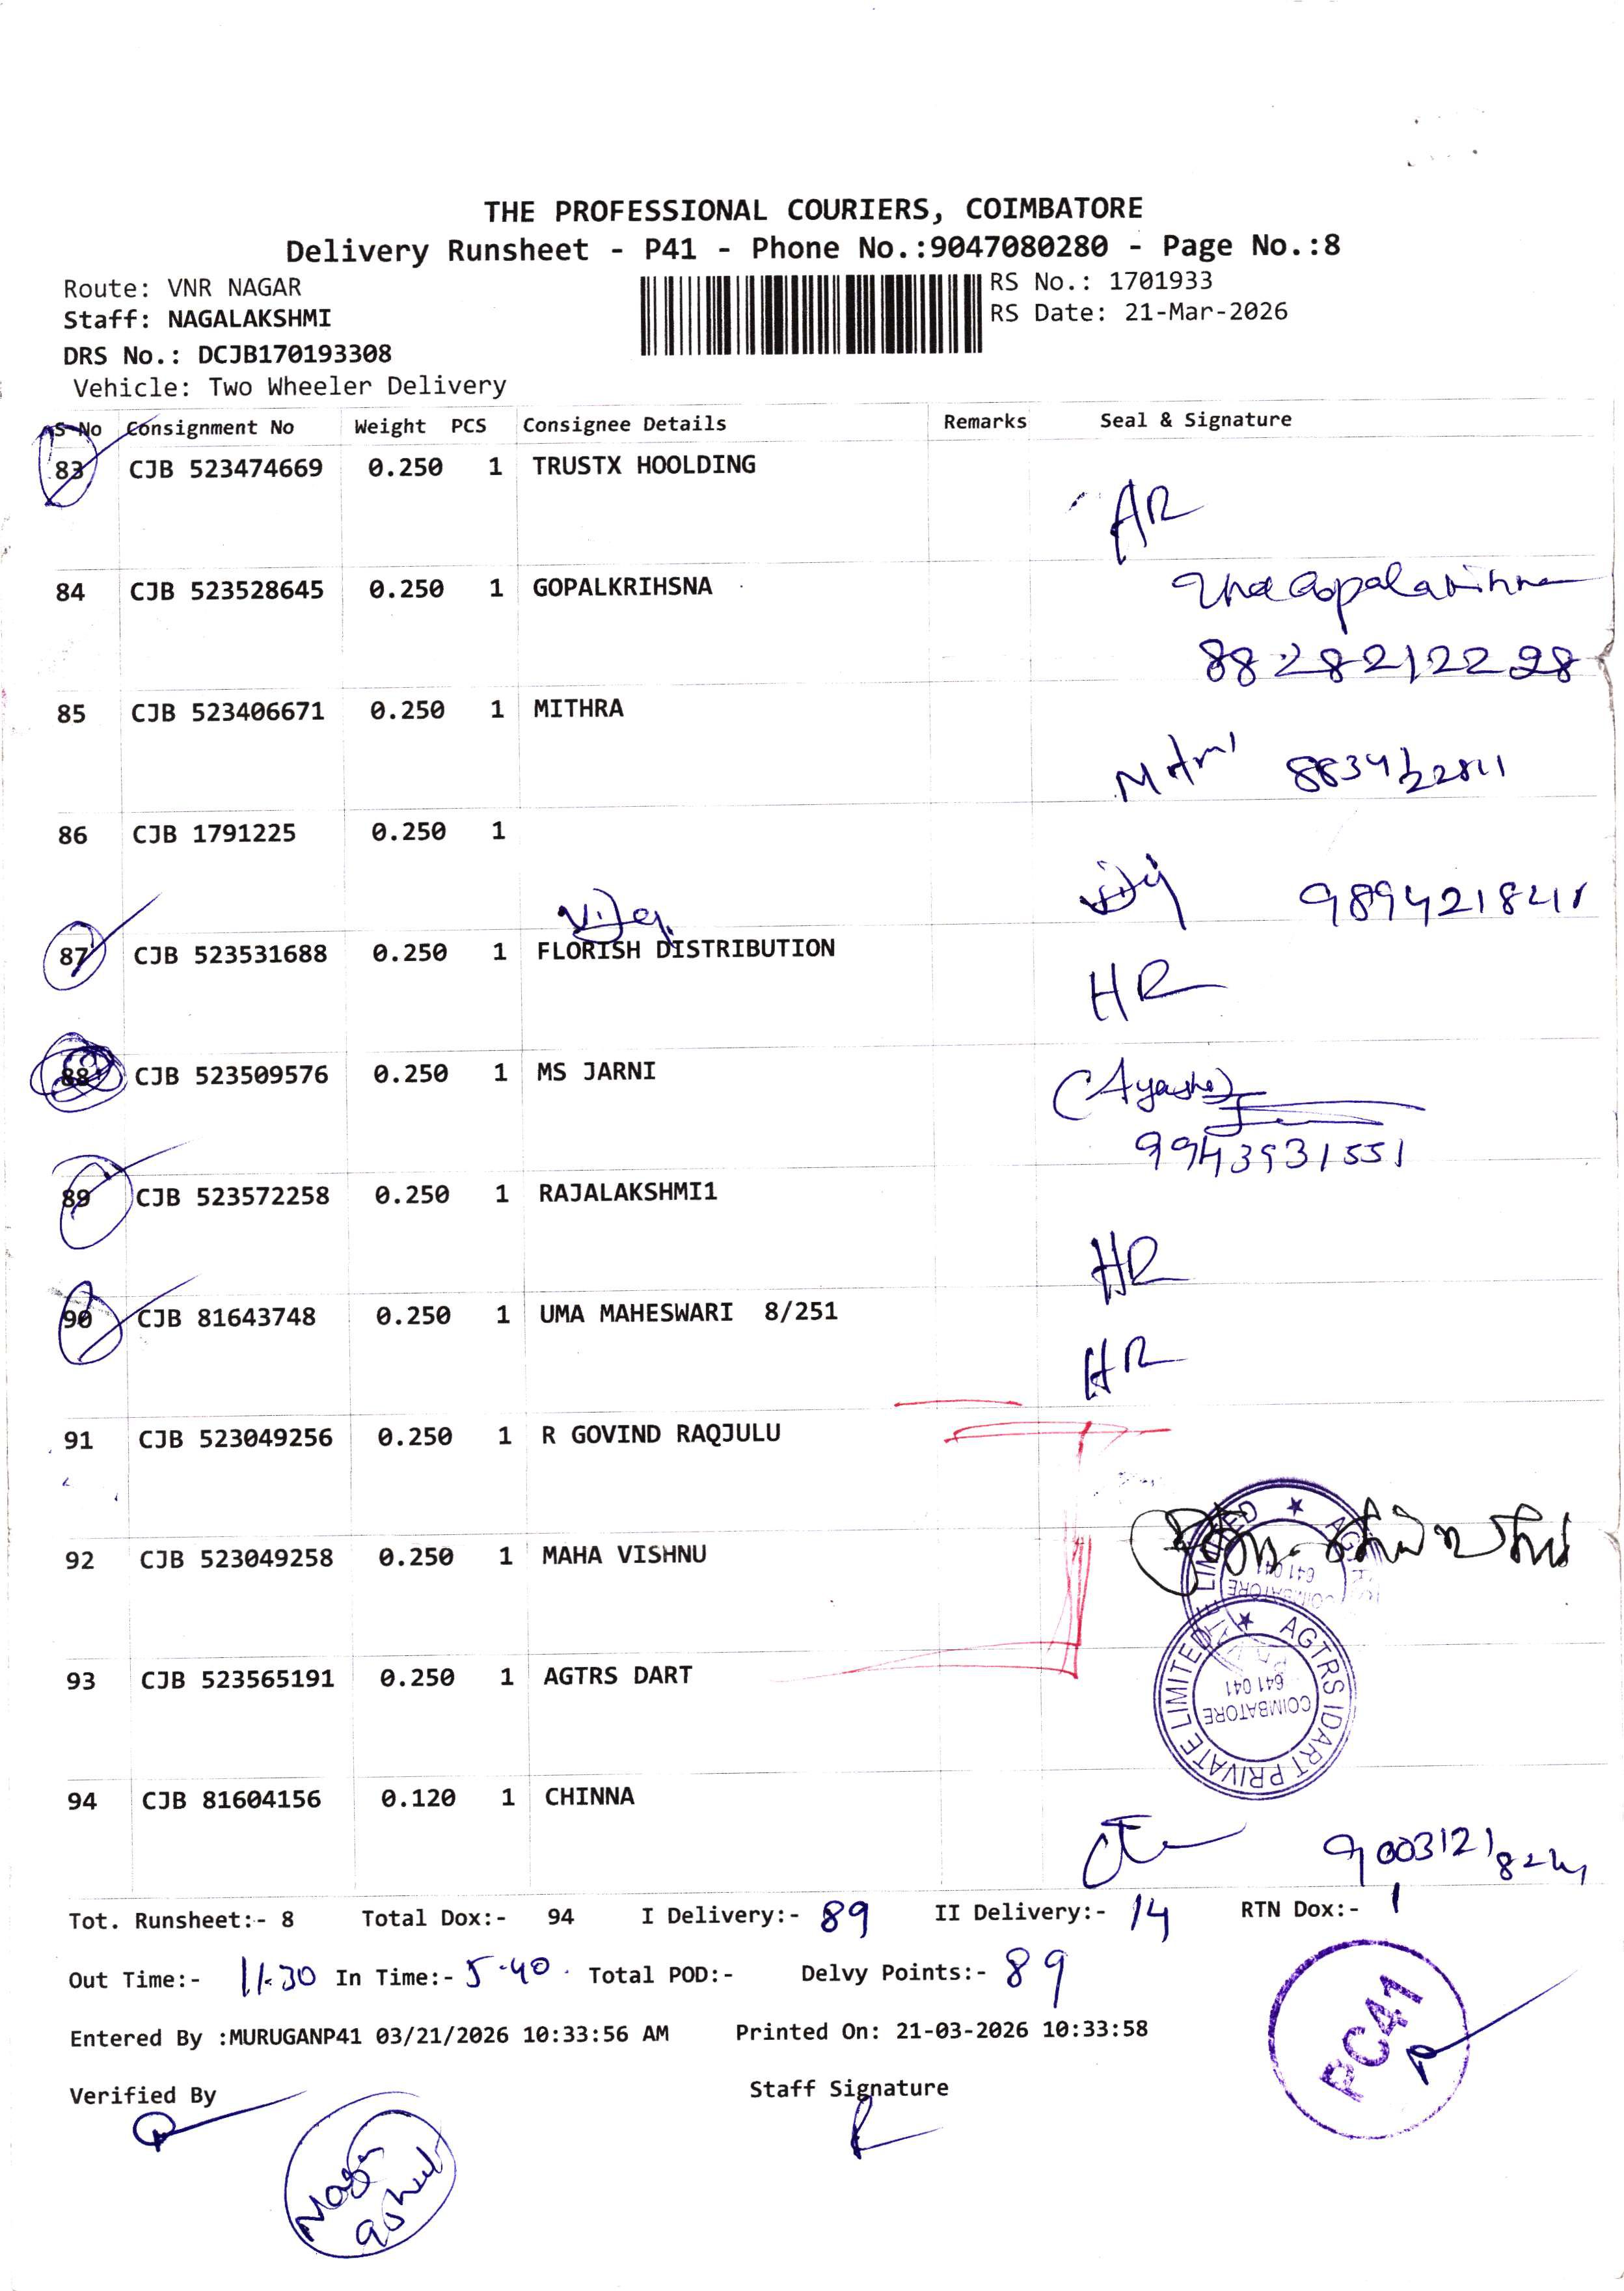 THE PROFESSIONAL COURIERS, COIMBATORE
Delivery Runsheet - P41 - Phone No.:9047080280 - Page No.:8
Route: VNR NAGAR
RS No.: 1701933
Staff: NAGALAKSHMI
RS Date: 21-Mar-2026
DRS No.: DCJB170193308
Vehicle: Two Wheeler Delivery
S No Consignment No Weight PCS Consignee Details Remarks Seal & Signature
83 CJB 523474669 0.250 1 TRUSTX HOOLDING
AR
84 CJB 523528645 0.250 1 GOPALKRIHSNA
85 CJB 523406671 0.250 1 MITHRA
86 CJB 1791225 0.250 1
9894218411
87 CJB 523531688 0.250 1 FLORISH DISTRIBUTION
HR
88 CJB 523509576 0.250 1 MS JARNI
9943931551
89 CJB 523572258 0.250 1 RAJALAKSHMI1
HR
90 CJB 81643748 0.250 1 UMA MAHESWARI 8/251
HR
91 CJB 523049256 0.250 1 R GOVIND RAQJULU
92 CJB 523049258 0.250 1 MAHA VISHNU
93 CJB 523565191 0.250 1 AGTRS DART
AGTRS IDART PRIVATE LIMITED
COIMBATORE
641 041
94 CJB 81604156 0.120 1 CHINNA
Tot. Runsheet:- 8 Total Dox:- 94 I Delivery:- 89 II Delivery:- 14 RTN Dox:- 1
Out Time:- 11.30 In Time:- 5.40. Total POD:- Delvy Points:- 89
Entered By :MURUGANP41 03/21/2026 10:33:56 AM Printed On: 21-03-2026 10:33:58
PC41
Verified By Staff Signature